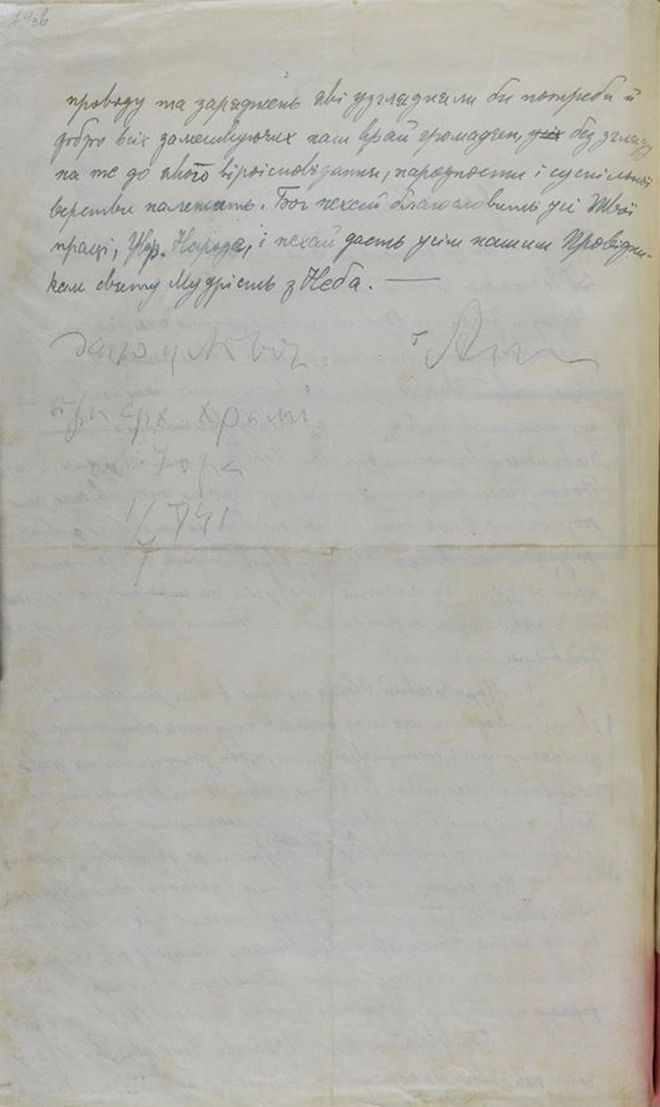 проводу та заряджень які узгляднали би потреби й
добро всіх замешкуючих наш край громадян, без згляду
на те до якого віроісповідання, народности і суспільної
верстви належать. Бог нехай благословить усі Твої
праці, Укр. Народе, і нехай дасть усім нашим Провідни-
кам святу Мудрість з Неба. —
Дано у Львові
при арх. храмі
св. Юра
1/7 941